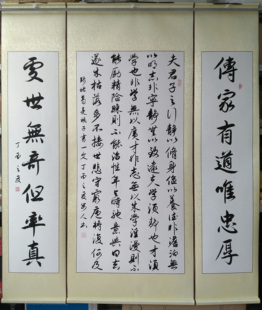 傳家有道唯忠厚
夫君子之行靜以修身儉以養德非澹泊無
以明志非寧靜無以致遠夫學須靜也才須
學也非學無以廣才非志無以成學淫漫則不
能勵精險躁則不能治性年與時馳意與日去
遂成枯落多不接世悲守窮廬將復何及
諸葛亮誡子書一文丁酉之夏
處世無奇但率真
丁酉之夏